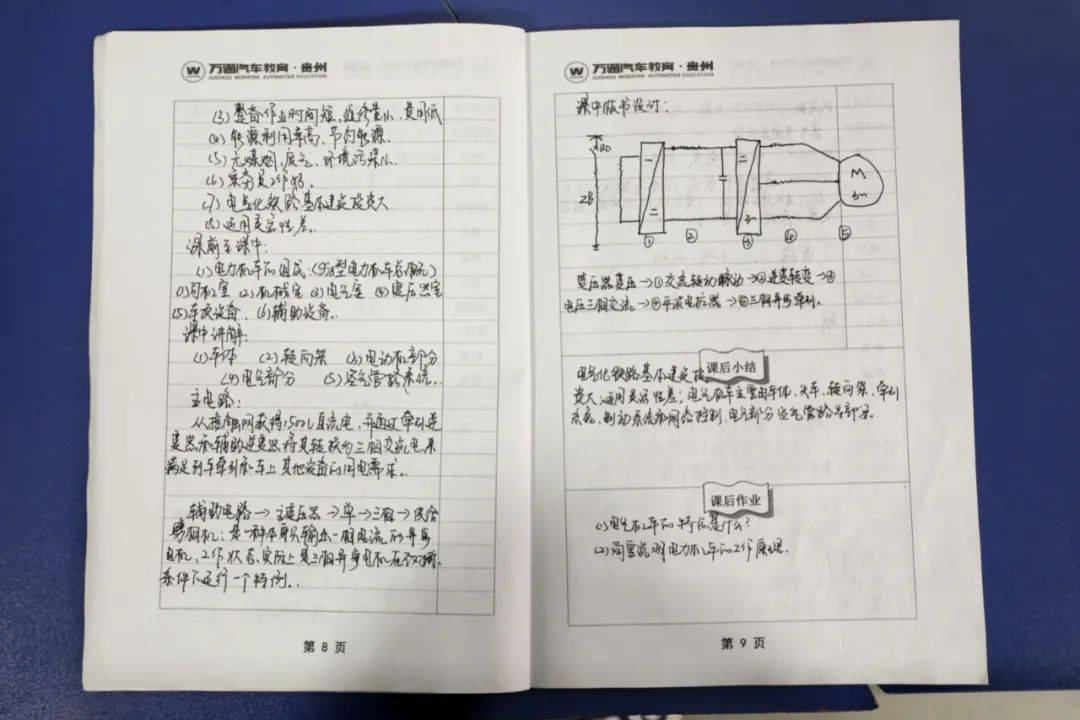 万通汽车教育·贵州
GUIZHOU WONTONE AUTOMOTIVE EDUCATION
(3) 整备作业时间短, 维修量小, 费用低
(4) 能源利用率高, 节约能源.
(5) 无煤烟, 废气, 环境污染小.
(6) 乘务员工作好.
(7) 电气化铁路基本建设投资大
(8) 运用灵活性差.
课前至课中:
(1) 电力机车的组成:
(1) 司机室 (2) 机械室 (3) 电气室 (4) 变压器室
(5) 车顶设备. (6) 辅助设备.
课中讲解:
(1) 车体 (2) 转向架 (3) 电动机部分
(4) 电气部分 (5) 空气管路系统.
主电路:
从接触网获得1500V直流电, 并通过牵引逆
变器和辅助逆变器将其转换为三相交流电来
满足列车牵引和车上其他设备的用电需求.
辅助电路→主变压器→单→三相→供给
劈相机: 是一种本身只输入一相电流的异步
电机, 工作状态实际上是三相异步电机在不对称
条件下运行一个特例.
第 8 页
万通汽车教育·贵州
GUIZHOU WONTONE AUTOMOTIVE EDUCATION
课中板书设计:
M
3~
① ② ③ ④ ⑤
变压器变压→①交流转动脉动→②逆变转变→③
电压三相交流→④平波电抗器→⑤三相异步牵引.
课后小结
电气化铁路基本建设投
资大; 运用灵活性差; 电气机车主要由车体, 转向架, 牵引
系统, 制动系统和网络控制, 电气部分空气管路等部分.
课后作业
(1) 电气机车的特点是什么?
(2) 简要说明电力机车的工作原理.
第 9 页